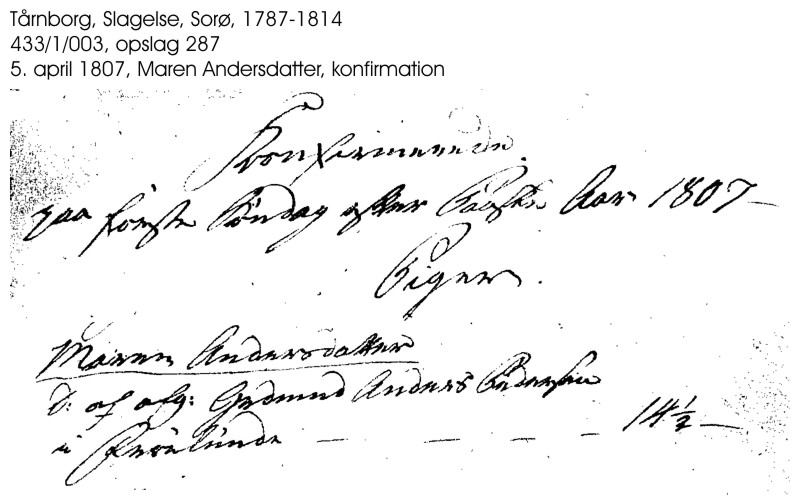 Tårnborg, Slagelse, Sorø, 1787-1814
433/1/003, opslag 287
5. april 1807, Maren Andersdatter, konfirmation
Konfirmerede
paa første Søndag efter Paaske Aar 1807
Piger.
Maren Andersdatter
D: af afg: Grdmnd Anders Pedersen
i Frølunde — — — — 14½ —